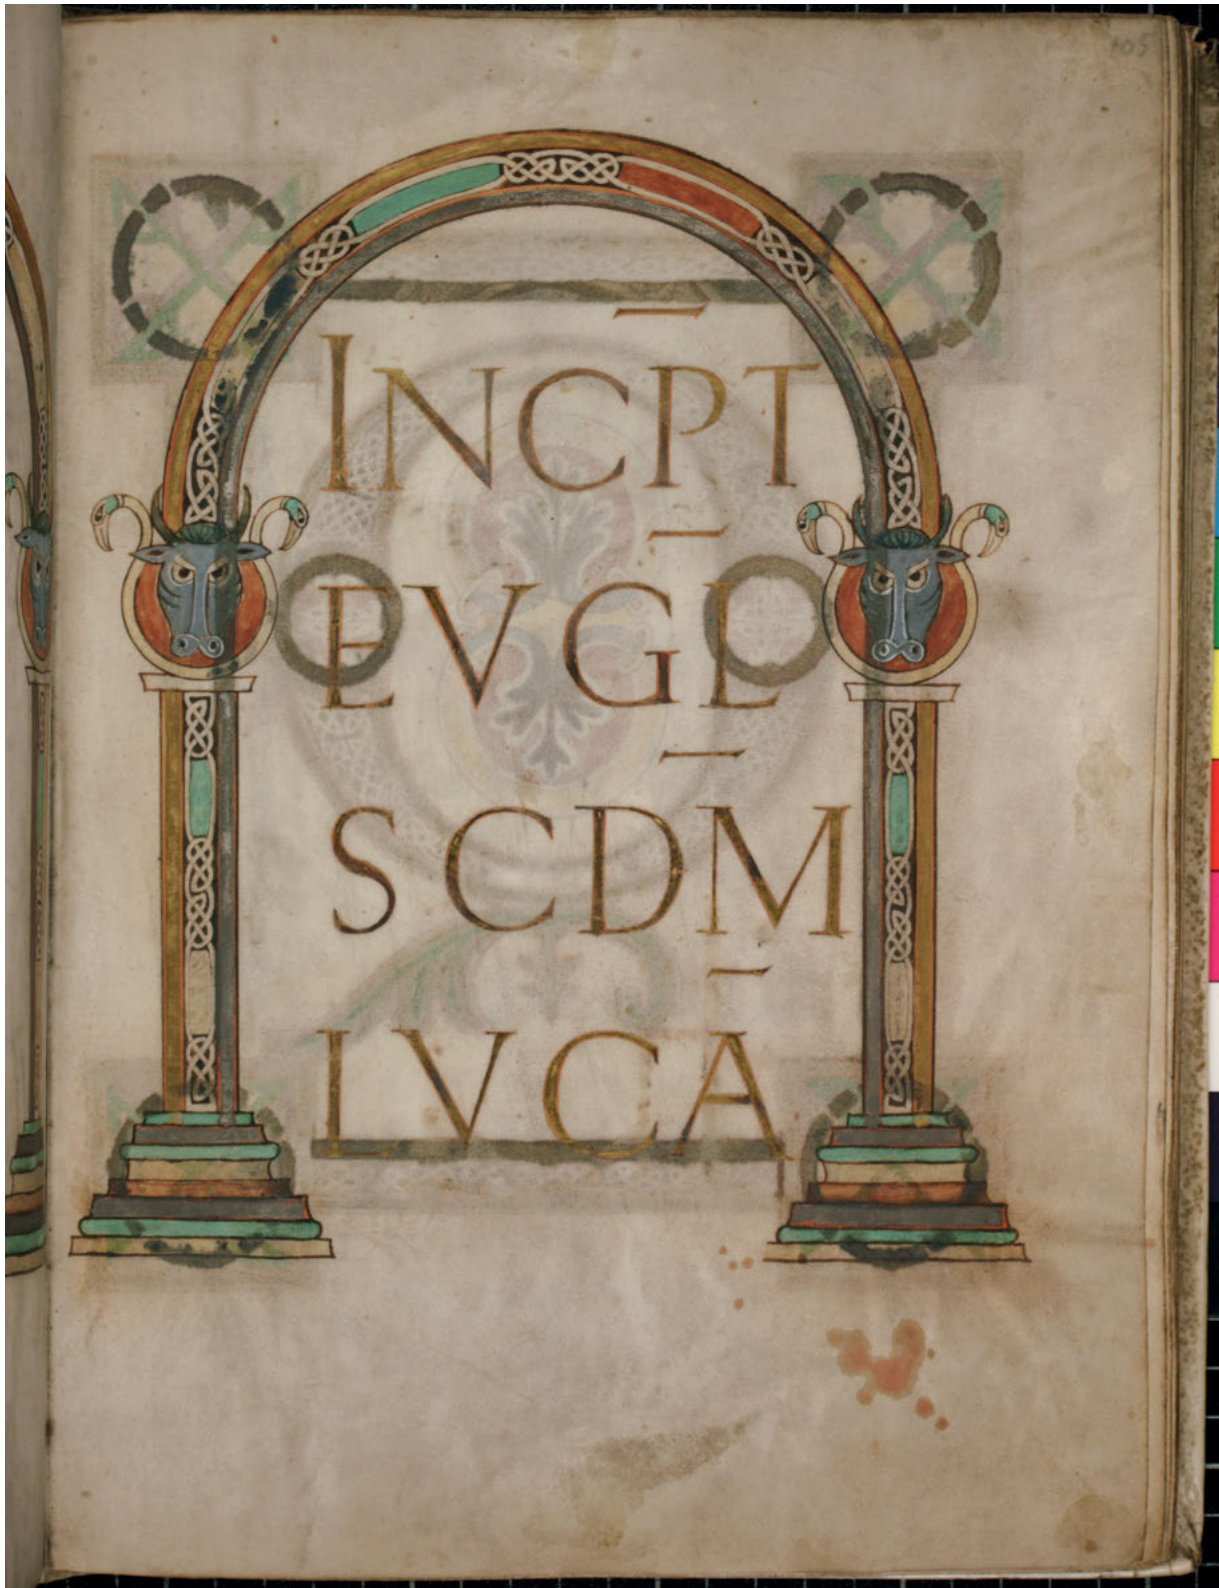 105
INCP̅T
EVGL̅
SCDM̅
LVCA̅